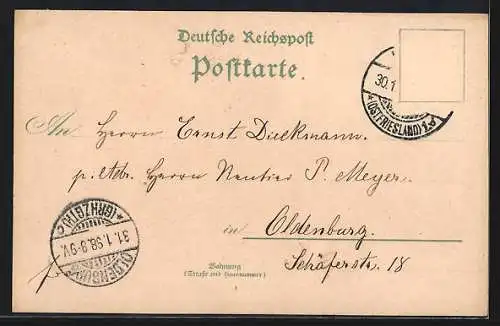 Deutsche Reichspost
Postkarte.
30.1
*(OSTFRIESLAND)*
An Herrn Ernst Dieckmann.
p. Adr. Herrn Rentier P. Meyer.
in Oldenburg.
Schäferstr. 18
Wohnung
(Straße und Hausnummer)
OLDENBURG
31.1.98.8-9V.
*(GRHZGTH.)